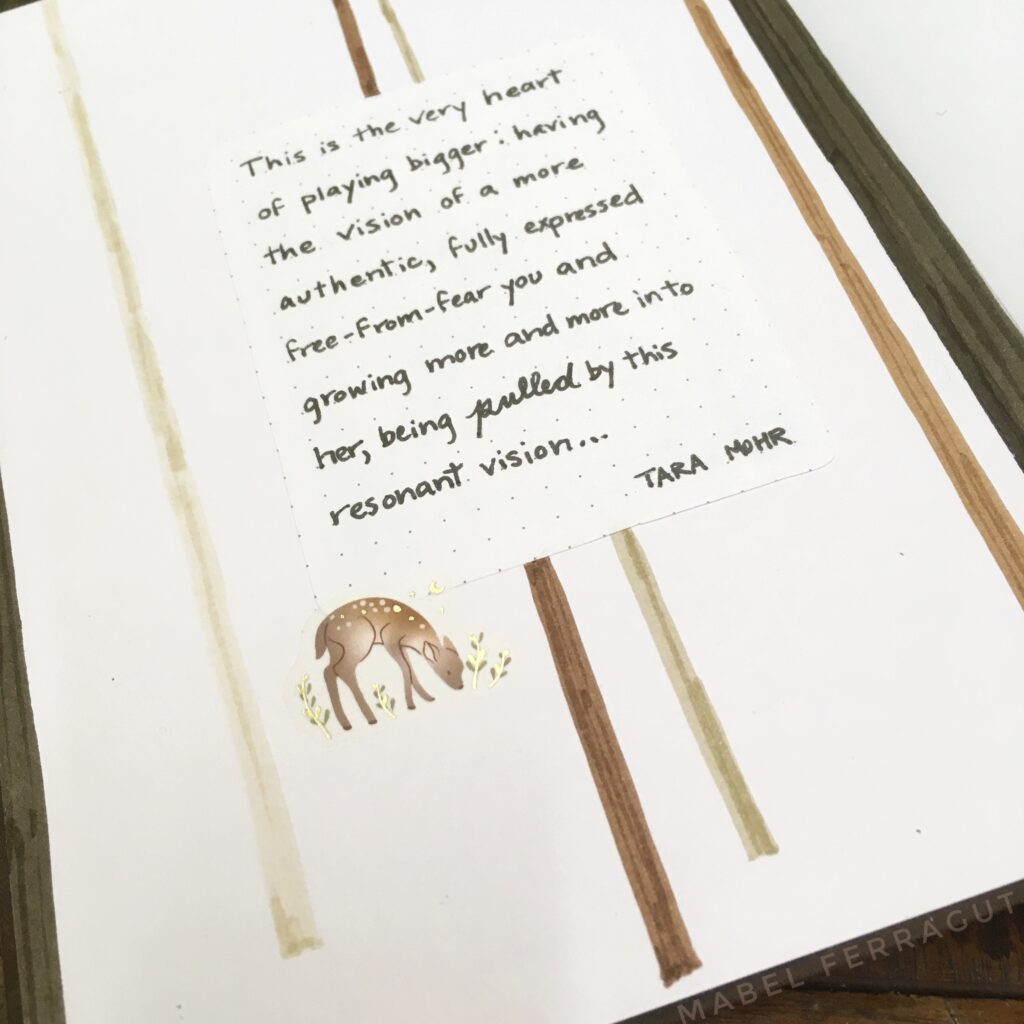 This is the very heart
of playing bigger: having
the vision of a more
authentic, fully expressed
free-from-fear you and
growing more and more into
her, being pulled by this
resonant vision...
TARA MOHR
MABEL FERRAGUT